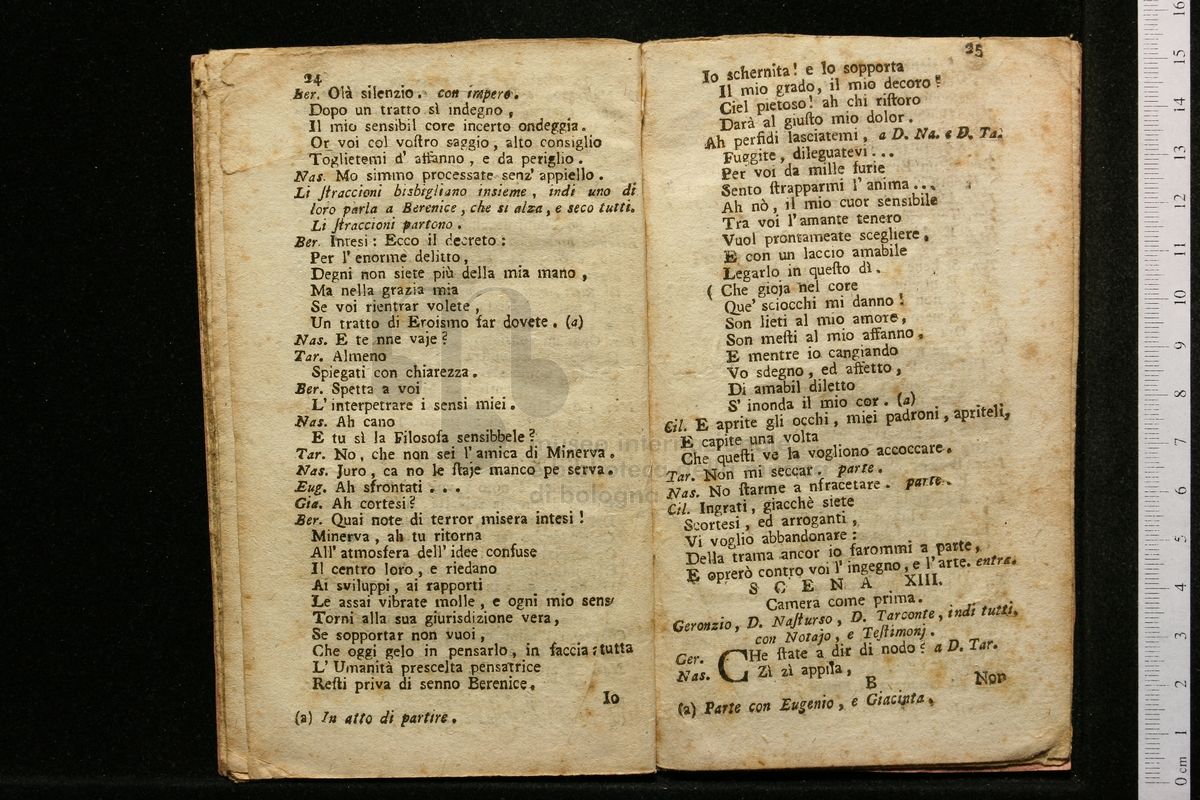 24
Ber. Olà silenzio. con impero.
Dopo un tratto sì indegno,
Il mio sensibil core incerto ondeggia.
Or voi col voſtro saggio, alto consiglio
Toglietemi d' affanno, e da periglio.
Nas. Mo simmo processate senz' appiello.
Li ſtraccioni bisbigliano insieme, indi uno di
loro parla a Berenice, che si alza, e seco tutti.
Li ſtraccioni partono.
Ber. Intesi: Ecco il decreto:
Per l' enorme delitto,
Degni non siete più della mia mano,
Ma nella grazia mia
Se voi rientrar volete,
Un tratto di Eroismo far dovete. (a)
Nas. E te nne vaje?
Tar. Almeno
Spiegati con chiarezza.
Ber. Spetta a voi
L' interpetrare i sensi miei.
Nas. Ah cano
E tu sì la Filosofa sensibbele?
Tar. No, che non sei l' amica di Minerva.
Nas. Juro, ca no le ſtaje manco pe serva.
Eug. Ah sfrontati...
Gia. Ah cortesi?
Ber. Quai note di terror misera intesi!
Minerva, ah tu ritorna
All' atmosfera dell' idee confuse
Il centro loro, e riedano
Ai sviluppi, ai rapporti
Le assai vibrate molle, e ogni mio sens
Torni alla sua giurisdizione vera,
Se sopportar non vuoi,
Che oggi gelo in pensarlo, in faccia: tutta
L' Umanità prescelta pensatrice
Reſti priva di senno Berenice.
Io
(a) In atto di partire.
25
Io schernita! e lo sopporta
Il mio grado, il mio decoro?
Ciel pietoso! ah chi riſtoro
Darà al giuſto mio dolor.
Ah perfidi lasciatemi, a D. Na. e D. Ta.
Fuggite, dileguatevi...
Per voi da mille furie
Sento ſtrapparmi l' anima...
Ah nò, il mio cuor sensibile
Tra voi l' amante tenero
Vuol prontameate scegliere,
E con un laccio amabile
Legarlo in queſto dì.
( Che gioja nel core
Que' sciocchi mi danno!
Son lieti al mio amore,
Son meſti al mio affanno,
E mentre io cangiando
Vo sdegno, ed affetto,
Di amabil diletto
S' inonda il mio cor. (a)
Cil. E aprite gli occhi, miei padroni, apriteli,
E capite una volta
Che queſti ve la vogliono accoccare.
Tar. Non mi seccar. parte.
Nas. No ſtarme a nfracetare. parte.
Cil. Ingrati, giacchè siete
Scortesi, ed arroganti,
Vi voglio abbandonare:
Della trama ancor io farommi a parte,
E oprerò contro voi l' ingegno, e l' arte. entra.
SCENA XIII.
Camera come prima.
Geronzio, D. Naſturso, D. Tarconte, indi tutti,
con Notajo, e Teſtimonj.
Ger. CHe ſtate a dir di nodo? a D. Tar.
Nas. Zì zì appila,
B Non
(a) Parte con Eugenio, e Giacinta.